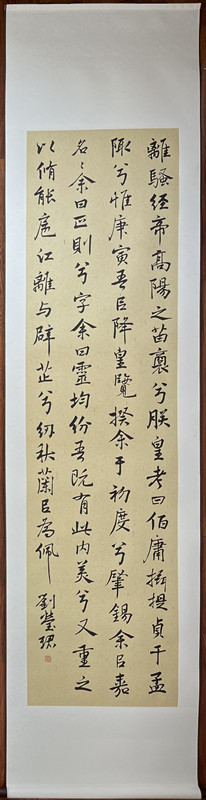 離騷經帝高陽之苗裔兮朕皇考曰伯庸攝提貞于孟
陬兮惟庚寅吾㠯降皇覽揆余于初度兮肇錫余㠯嘉
名名余曰正則兮字余曰靈均份吾既有此内美兮又重之
以脩能扈江離与辟芷兮纫秋蘭㠯為佩
劉瑩珺